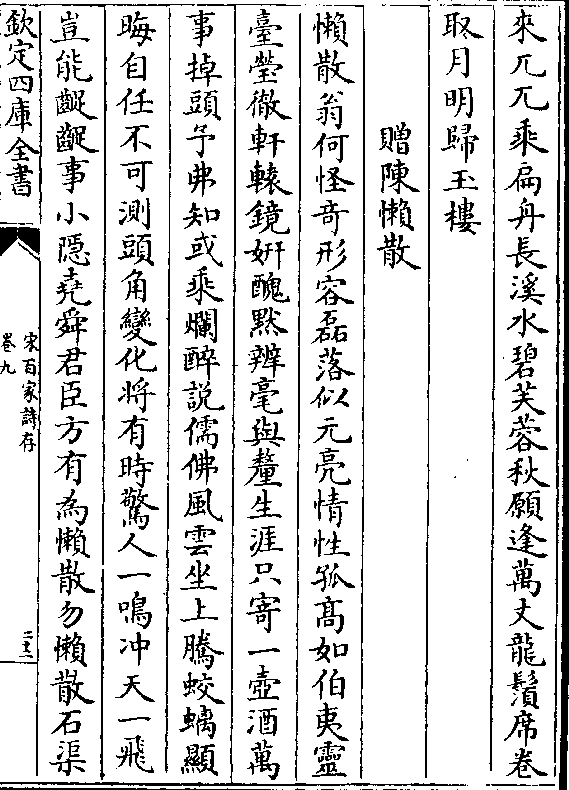 來兀兀乘扁舟長溪水碧芙蓉秋願逢萬丈龍鬚席卷
取月明歸玉樓
贈陳懶散
懶散翁何怪竒形容磊落似元亮情性孤髙如伯夷靈
臺瑩徹軒轅鏡妍醜黙辨毫與釐生涯只寄一壺酒萬
事掉頭予弗知或乘爛醉説儒佛風雲坐上騰蛟螭顯
晦自任不可測頭角變化将有時驚人一鳴冲天一飛
豈能齷齪事小隠堯舜君臣方有為懶散勿懶散石渠
欽定四庫全書
宋百家詩存
卷九